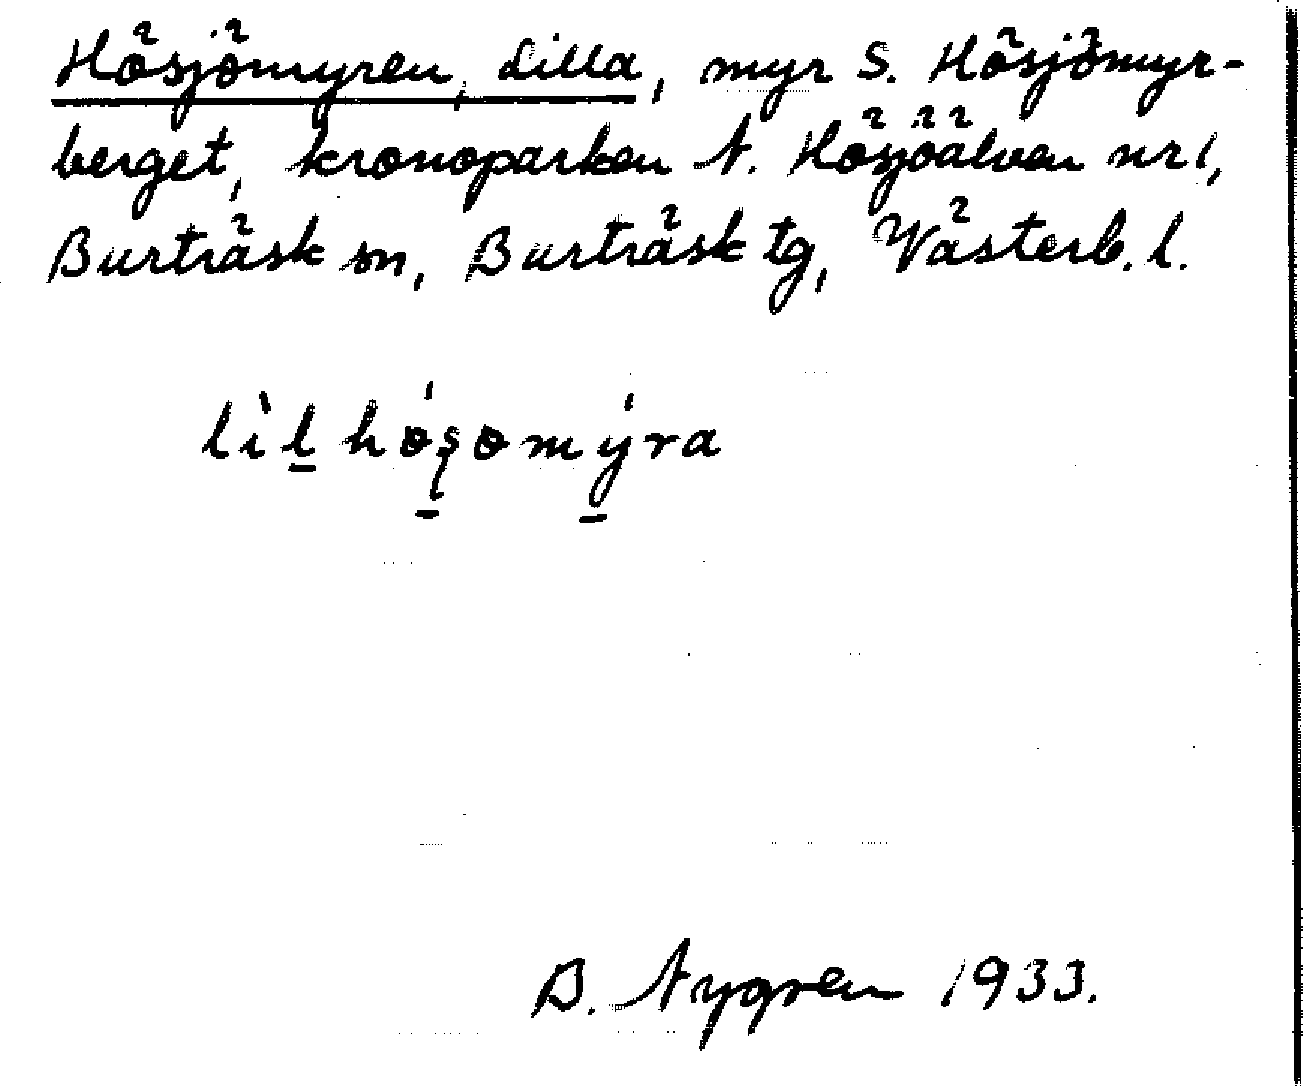 Hösjömyren, Lilla, myr S. Hösjömyr-
berget, kronoparken N. Hösjöälven nr 1,
Burträsk sn, Burträsk tg, Västerb. l.
lìl̲ hǿsømýra
B. Nygren 1933.